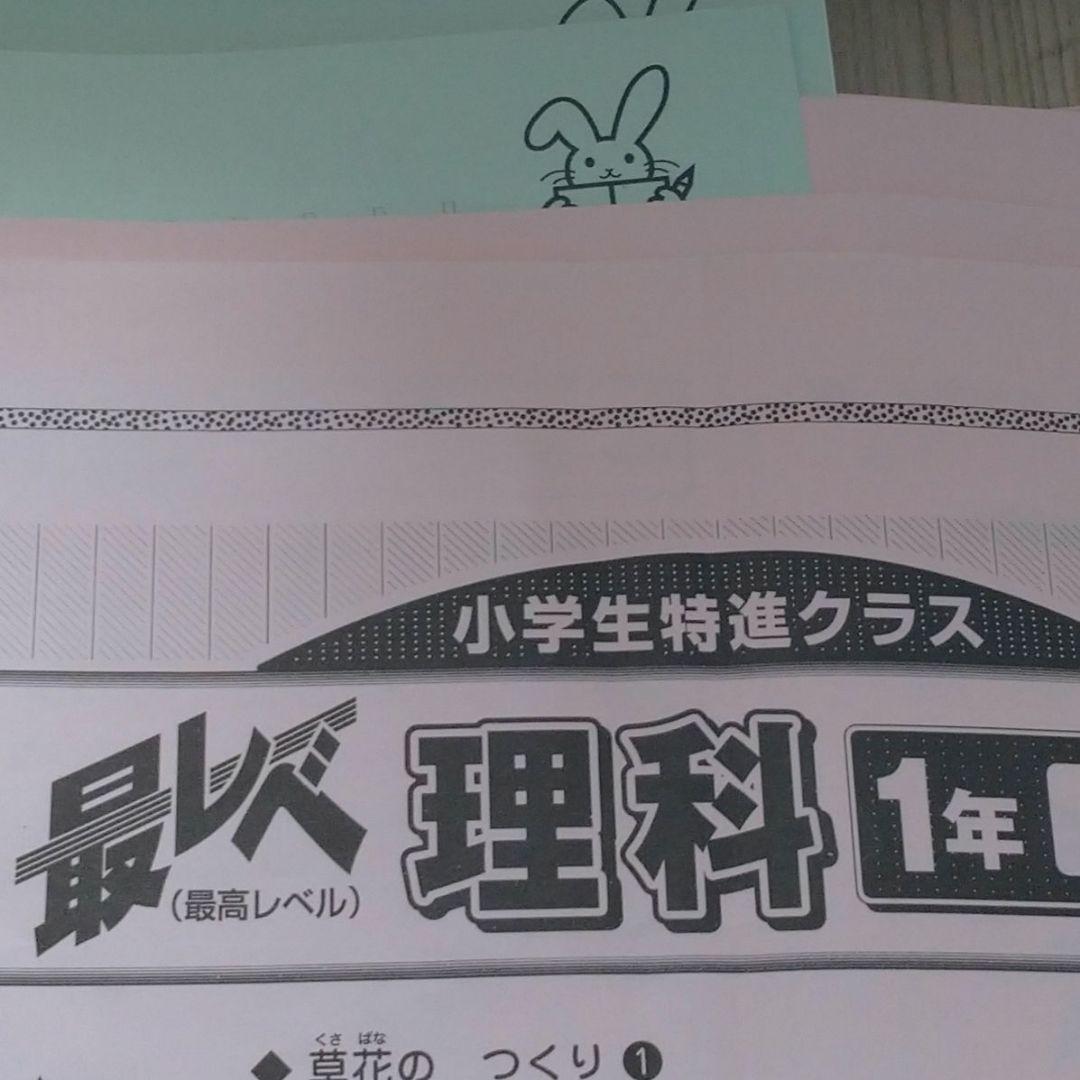 小学生特進クラス
最レベ
(最高レベル)
理科
1年
くさ ばな
◆ 草花の つくり ❶